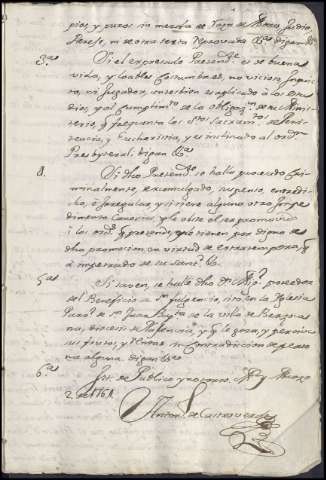 pios, y puros sin mezcla de raza de Moros, Judios
Erexes, ni de otra secta reprovada &ª digan &ª
3.as Si el expresado Presend.te es de buena
vida, y loables costumbres, no vicioso, inquieto,
ni jugador, antes bien es aplicado a los estu
dios, y al cumplim.to de la obligaz.n de su Minis
terio, q frequenta los S.tos Sacram.tos de Peni
tencia, y Eucharistia, y es inclinado al ord.n
Presbyteral, digan &ª
4. Si dho Presend.te se halla procesado cri
minalmente, excomulgado, suspenso, entredi
cho, ò irregular, y si tiene alguno otro impe
dimento Canonico q le obste el ser promovido
à los ord.s q pretende, q le tienen por digno de
dha promocion en virtud de extratempora, q
à impetrado de su Sant.d &ª
5.as Si saven, se halla dho D.n poseedor
del Beneficio de S.n Fulgencio, sito en la Iglesia
Parroq.l de S.n Juan Bap.ta de la villa de Berzoca
na, diocesis de Plasencia, y q le goza, y percive
sus frutos, y rentas sin contradiccion de perso
na alguna digan &ª
6.as It. de Publico y notorio, &ª y Marzo
2 de 1761
Anton.o de Castroverde